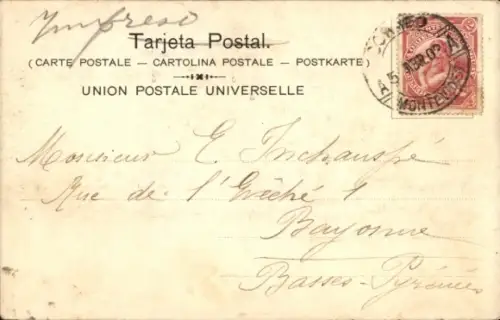 Impreso
Tarjeta Postal.
(CARTE POSTALE - CARTOLINA POSTALE - POSTKARTE)
UNION POSTALE UNIVERSELLE
CORREO
MONTEVIDEO
Monsieur E. Inchauspé
Rue de l'Evêché 1
Bayonne
Basses-Pyrénées